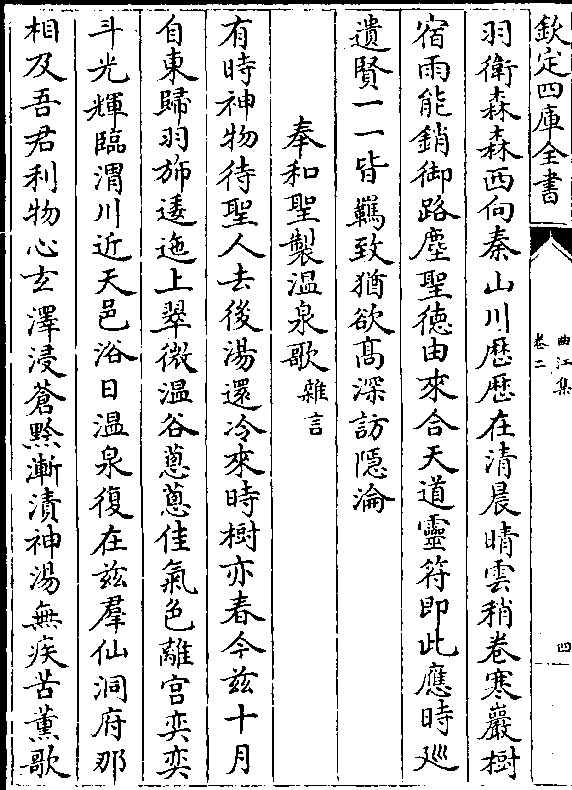 欽定四庫全書
曲江集
卷二
四
羽衛森森西向秦山川歴歴在清晨晴雲稍卷寒巖樹
宿雨能銷御路塵聖徳由來合天道靈符即此應時廵
遺賢一一皆羈致猶欲髙深訪隠淪
奉和聖製温泉歌雜言
有時神物待聖人去後湯還冷來時樹亦春今兹十月
自東歸羽斾逶迤上翠微温谷蔥蔥佳氣色離宫奕奕
斗光輝臨渭川近天邑浴日温泉復在兹羣仙洞府那
相及吾君利物心玄澤浸蒼黔漸漬神湯無疾苦薰歌